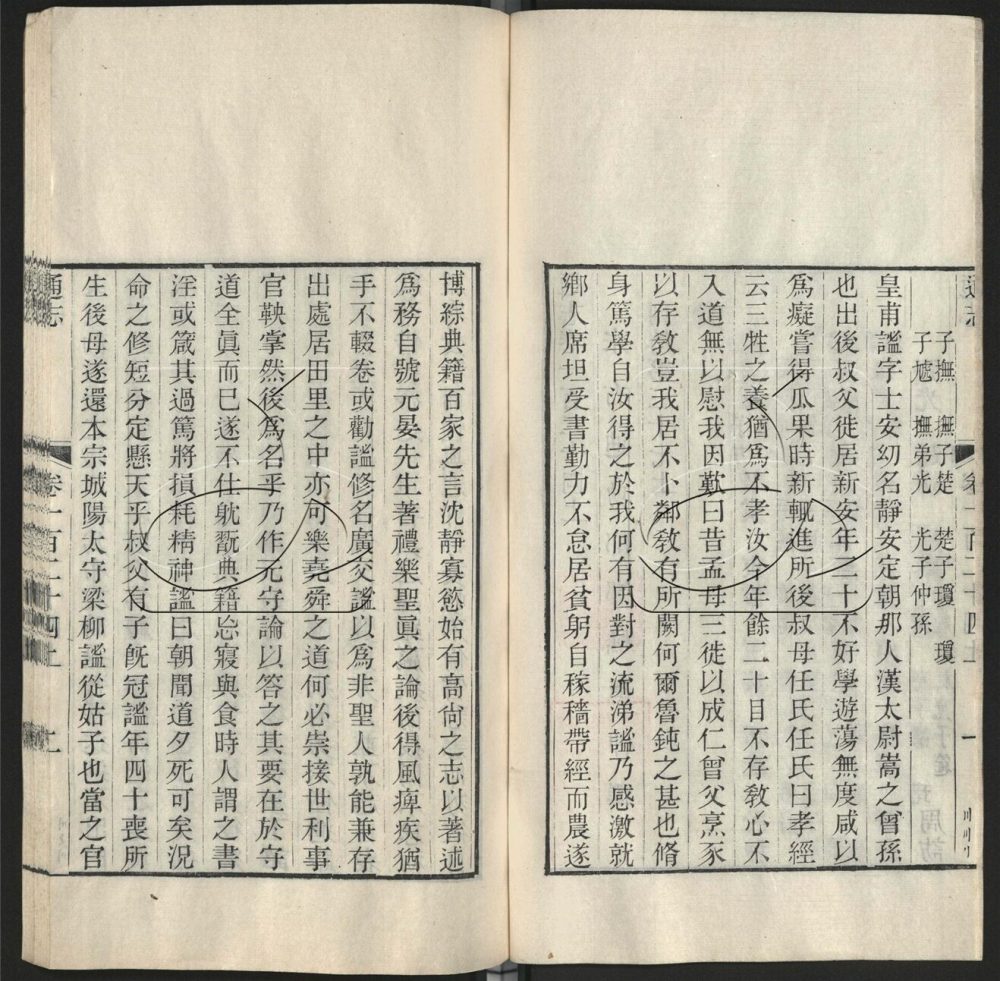 通志
卷一百二十四上
一
子撫 撫子楚 楚子瓊 瓊
子尪 撫弟光 光子仲孫
皇甫謐字士安幼名靜安定朝那人漢太尉嵩之曾孫
也出後叔父徙居新安年二十不好學遊蕩無度咸以
爲癡嘗得瓜果時新輒進所後叔母任氏任氏曰孝經
云三牲之養猶爲不孝汝今年餘二十目不存敎心不
入道無以慰我因歎曰昔孟母三徙以成仁曾父烹豕
以存敎豈我居不卜鄰敎有所闕何爾魯鈍之甚也脩
身篤學自汝得之於我何有因對之流涕謐乃感激就
鄉人席坦受書勤力不怠居貧躬自稼穡帶經而農遂
博綜典籍百家之言沈靜寡慾始有高尙之志以著述
爲務自號元晏先生著禮樂聖眞之論後得風痺疾猶
手不輟卷或勸謐修名廣交謐以爲非聖人孰能兼存
出處居田里之中亦可樂堯舜之道何必崇接世利事
官鞅掌然後爲名乎乃作元守論以答之其要在於守
道全眞而已遂不仕躭翫典籍忘寢與食時人謂之書
淫或箴其過篤將損耗精神謐曰朝聞道夕死可矣況
命之修短分定懸天乎叔父有子旣冠謐年四十喪所
生後母遂還本宗城陽太守梁柳謐從姑子也當之官
通志
卷一百二十四上
二